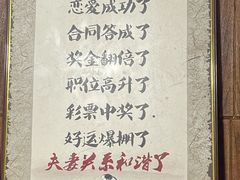 恋爱成功了
合同答成了
奖金翻倍了
职位高升了
彩票中奖了
好运爆棚了
夫妻关系和谐了